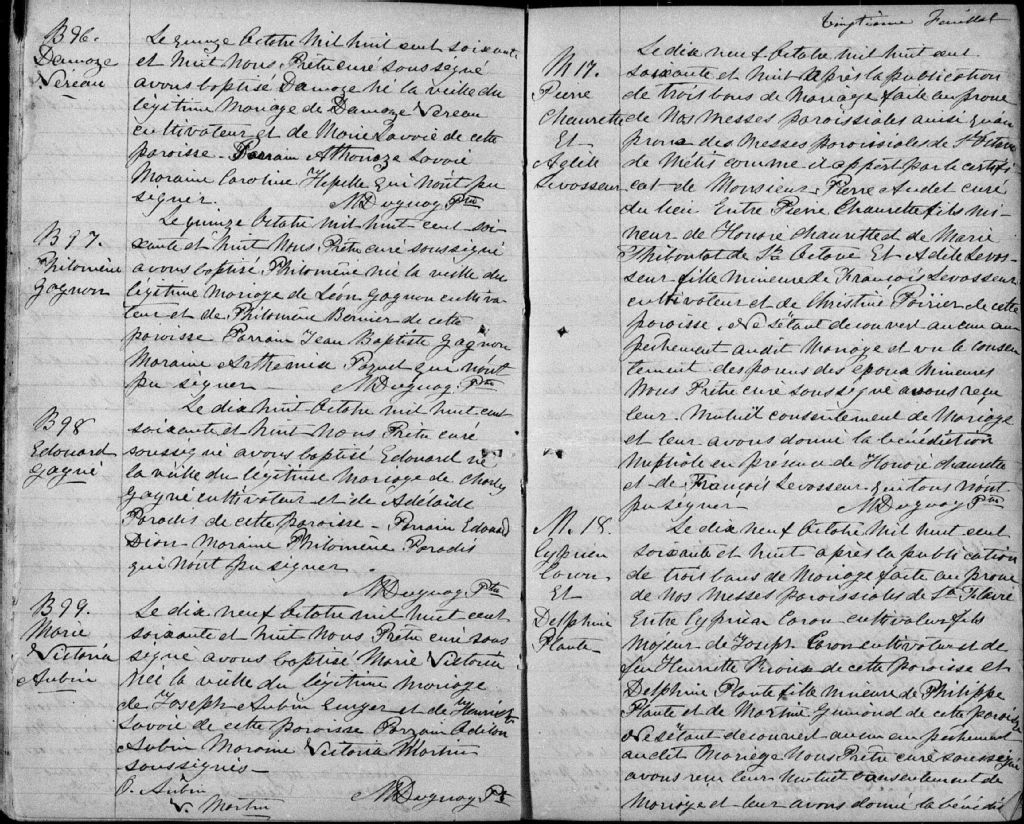 B 96.
Damaze
Vereau
Le quinze Octobre mil huit cent soixante
et huit Nous Prêtre curé soussigné
avons baptisé Damaze né la veille du
légitime Mariage de Damaze Vereau
cultivateur et de Marie Lavoie de cette
paroisse - Parrain Athanaze Lavoie
Maraine Caroline qui n'ont pu
signer. M Duguay Ptre
B 97.
Philomène
Gagnon
Le quinze Octobre mil huit cent soi-
xante et huit Nous Prêtre curé soussigné
avons baptisé Philomène née la veille du
légitime Mariage de Léon Gagnon cultiva-
teur et de Philomène Bernier de cette
paroisse Parrain Jean Baptiste Gagnon
Maraine Arthemise Paquet qui n'ont
pu signer M Duguay Ptre
B 98
Edouard
Gagné
Le dix huit Octobre mil huit cent
soixante et huit Nous Prêtre curé
soussigné avons baptisé Edouard né
la veille du légitime Mariage de Charles
Gagné cultivateur et de Adélaïde
Paradis de cette paroisse - Parrain Edouard
Dion Maraine Philomène Paradis
qui n'ont pu signer.
M Duguay Ptre
B 99.
Marie
Victoria
Aubin
Le dix neuf Octobre mil huit cent
soixante et huit Nous Prêtre curé sous
signé avons baptisé Marie Victoria
Née la veille du légitime Mariage
de Joseph Aubin et de Henriette
Lavoie de cette paroisse Parrain
Aubin Maraine Victoria Martin
soussignés -
O. Aubin
V. Martin M Duguay Pt
Vingtième Feuillet
M 17.
Pierre
Chaurette
Et
Adèle
Levasseur
Le dix neuf Octobre mil huit cent
soixante et huit après la publication
de trois bans de Mariage faite au prone
de Nos Messes paroissiales ainsi qu'au
prone des Messes paroissiales de St Octave
de Métis comme il appert par le certifi
cat de Monsieur Pierre Audet curé
du lieu Entre Pierre Chaurette fils mi-
neur de Honoré Chaurette et de Marie
Thiboutot de St Octave Et Adèle Levas-
seur fille mineure de François Levasseur
cultivateur et de Christine Poirier de cette
paroisse, Ne s'étant découvert aucun em
pêchement audit Mariage et vu le consen
tement des parens des époux mineurs
Nous Prêtre curé soussigné avons reçu
leur Mutuel consentement de Mariage
et leur avons donné la bénédiction
Nuptiale en présence de Honoré Chaurette
et de François Levasseur qui tous n'ont
pu signer M Duguay Ptre
M. 18.
Cyprien
Caron
Et
Delphine
Plante
Le dix neuf Octobre mil huit cent
soixante et huit après la publication
de trois bans de Mariage faite au prone
de Nos Messes paroissiales de Ste Flavie
Entre Cyprien Caron cultivateur fils
Majeur de Joseph Caron cultivateur et de
feu Henriette de cette paroisse et
Delphine Plante fille mineure de Philippe
Plante et de Martine Guimond de cette paroisse
Ne s'étant découvert aucun empêchement
audit Mariage Nous Prêtre curé soussigné
avons reçu leur Mutuel consentement de
Mariage et leur avons donné la bénédic